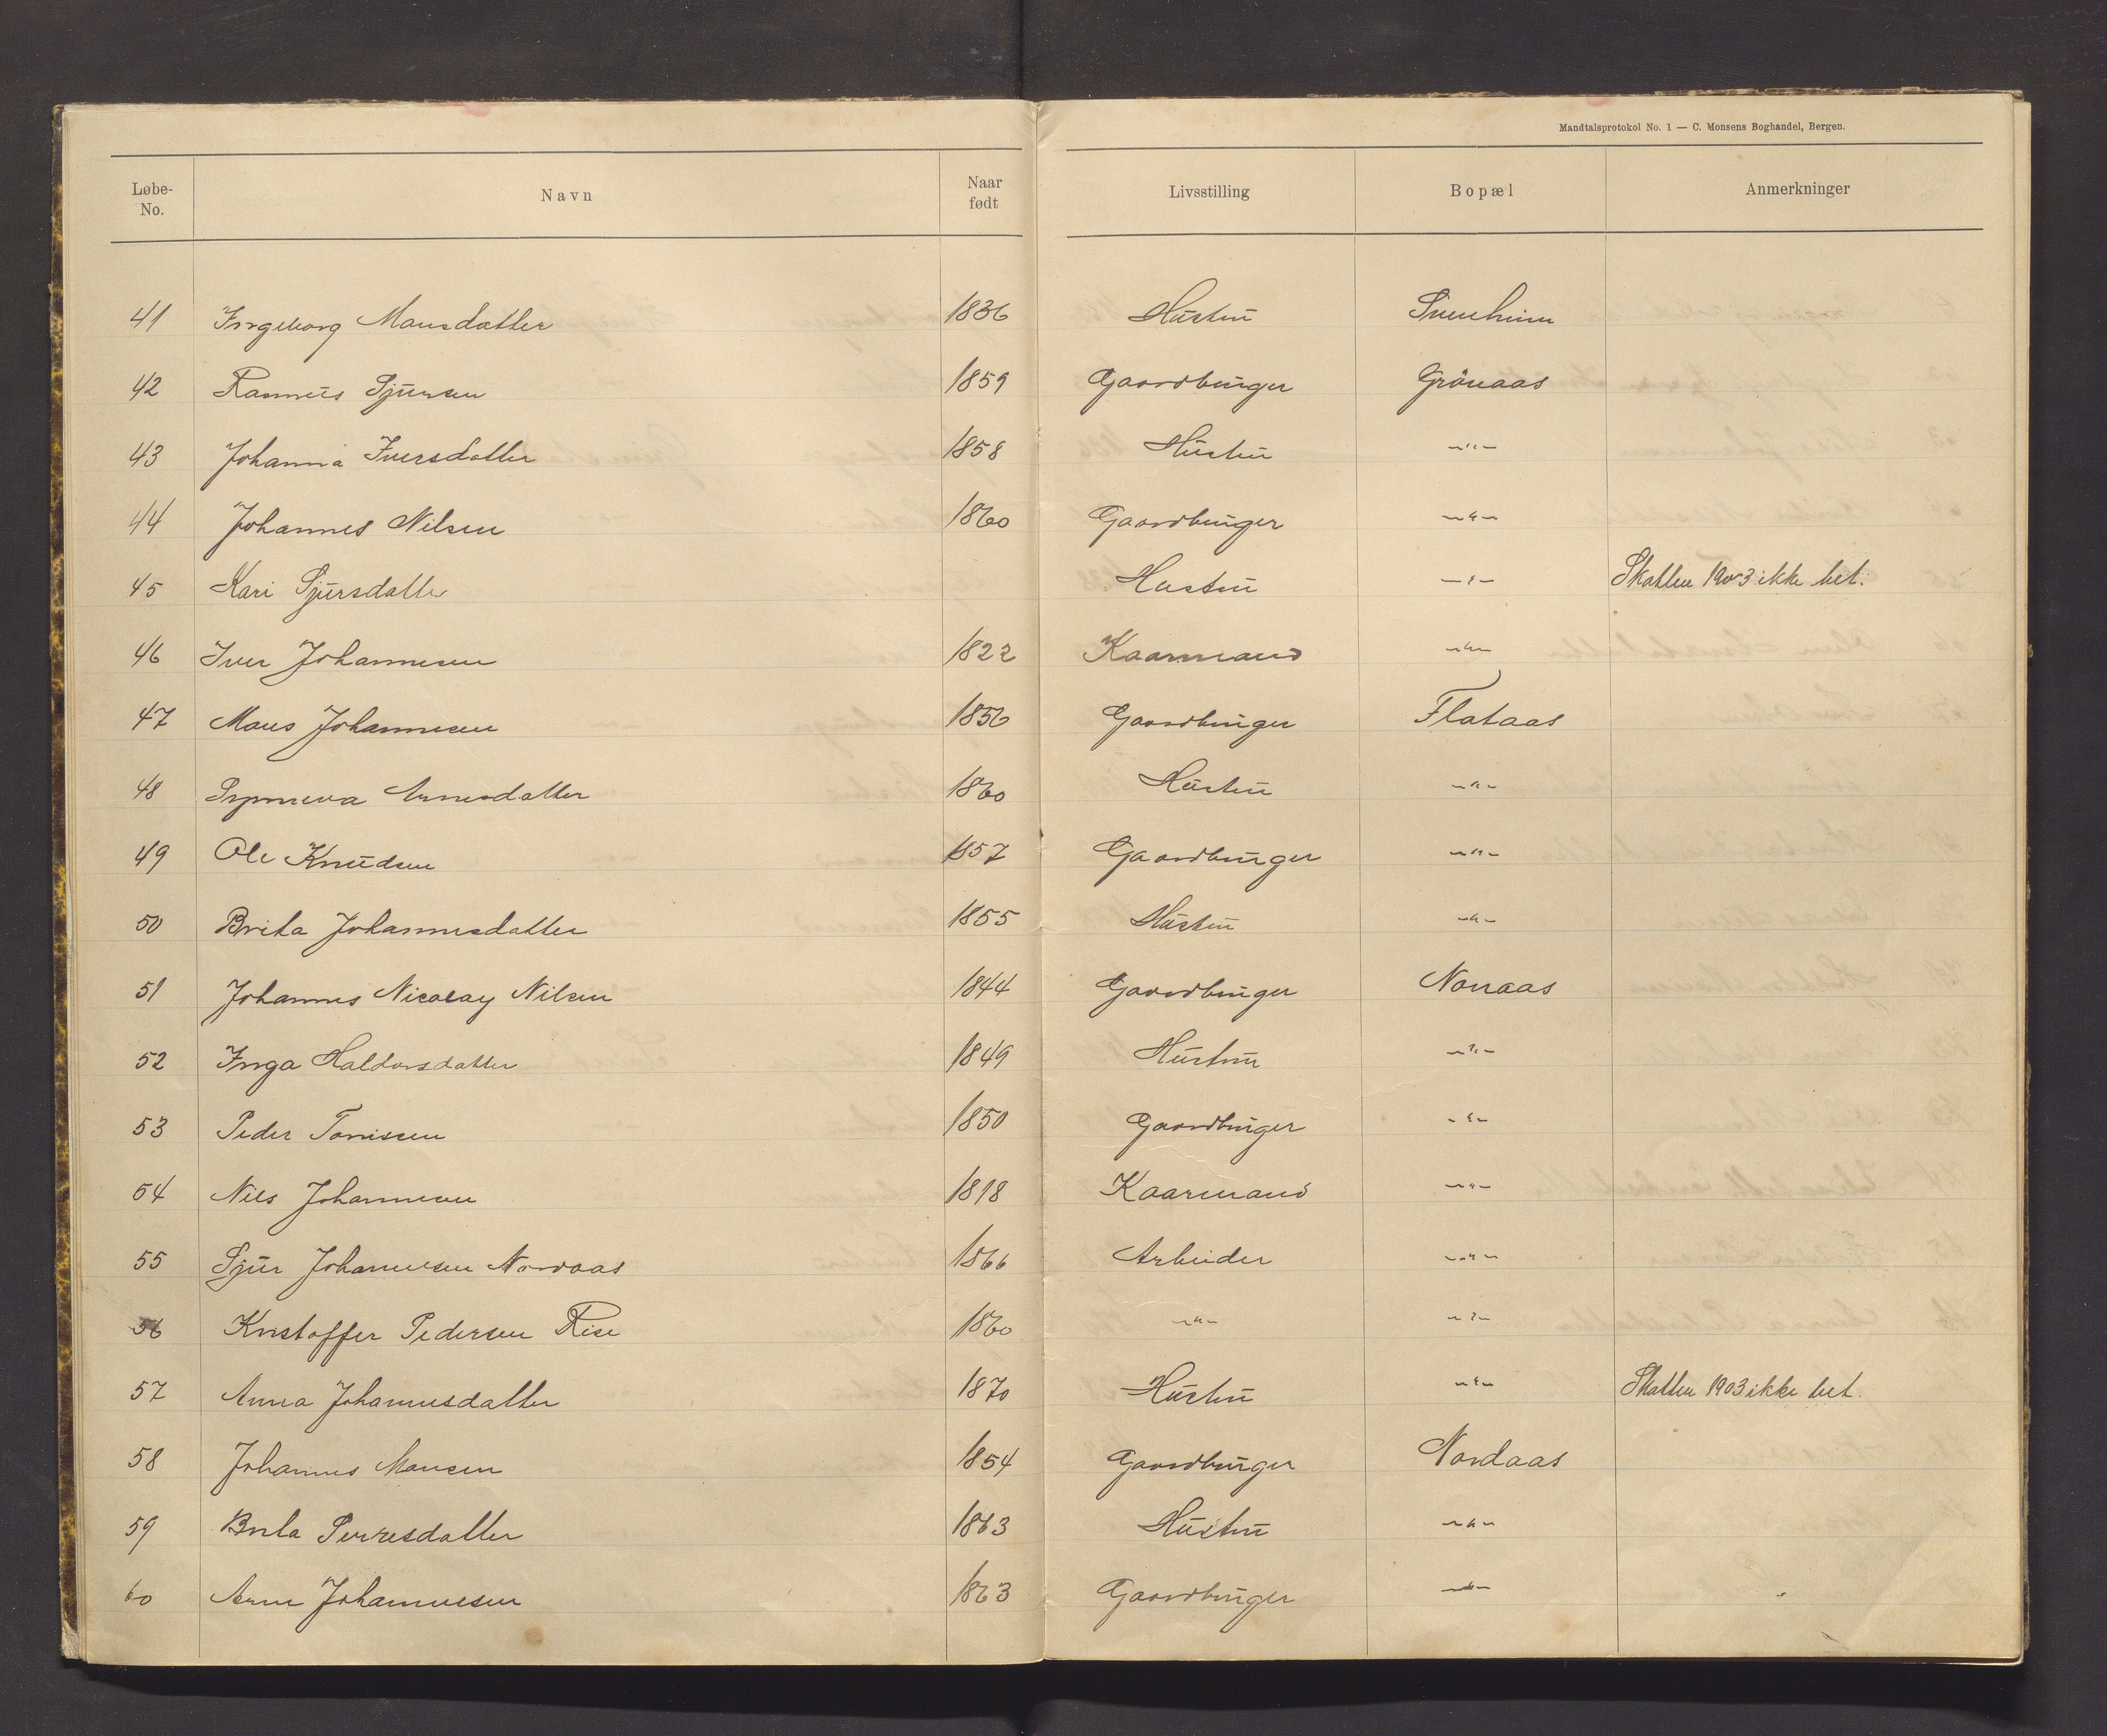 Mandtalsprotokol No. 1 — C. Monsens Boghandel, Bergen.
Løbe-No. Navn Naar født Livsstilling Bopæl Anmerkninger
41 Ingeborg Monsdatter 1836 Hustru
42 Rasmus Sjursen 1859 Gaardbruger Grönaas
43 Johanna Iversdatter 1858 Hustru —"—
44 Johannes Nilsen 1860 Gaardbruger —"—
45 Kari Sjursdatter Hustru —"— Skatten 1903 ikke bet.
46 Iver Johannesen 1822 Kaarmand —"—
47 Mons Johannesen 1856 Gaardbruger Flataas
48 Synneva Arnesdatter 1860 Hustru —"—
49 Ole Knudsen 1857 Gaardbruger —"—
50 Brita Johannesdatter 1855 Hustru —"—
51 Johannes Nicolay Nilsen 1844 Gaardbruger Noraas
52 Inga Haldorsdatter 1849 Hustru —"—
53 Peder Tomissen 1850 Gaardbruger —"—
54 Nils Johannesen 1818 Kaarmand —"—
55 Sjur Johannesen Nordaas 1866 Arbeider —"—
56 Kristoffer Pedersen Rise 1860 —"— —"—
57 Anna Johannesdatter 1870 Hustru —"— Skatten 1903 ikke bet.
58 Johannes Monsen 1854 Gaardbruger Nordaas
59 Brita Sjursdatter 1863 Hustru —"—
60 Arne Johannesen 1863 Gaardbruger —"—